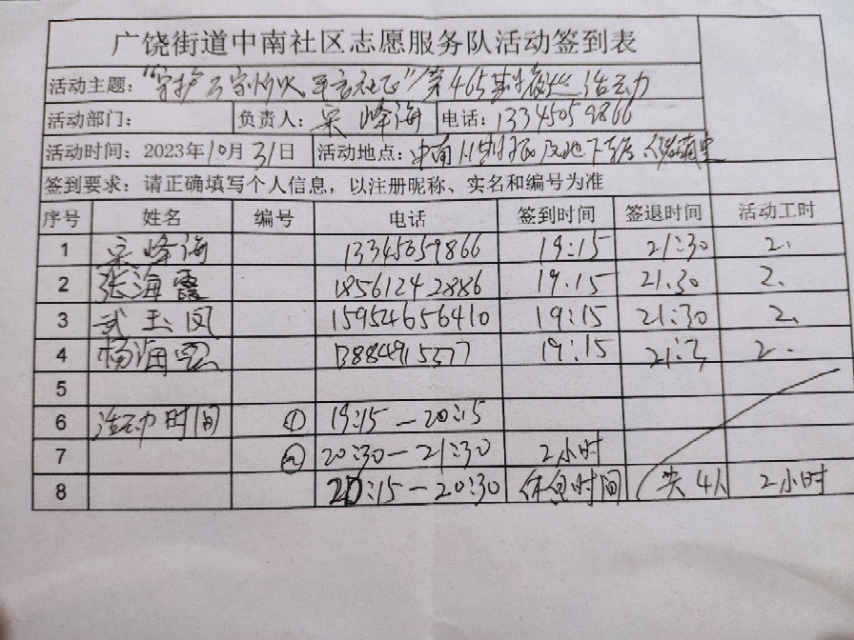 广饶街道中南社区志愿服务队活动签到表
活动主题："守护万家灯火 平安社区"/第465期夜巡活动
活动部门： 负责人：宋峰海 电话：13345059866
活动时间：2023年10月31日 活动地点：中南
签到要求：请正确填写个人信息，以注册昵称、实名和编号为准
序号 姓名 编号 电话 签到时间 签退时间 活动工时
1 宋峰海 13345059866 19:15 21:30 2.
2 张海霞 18561242886 19.15 21.30 2.
3 武玉凤 15954656410 19:15 21:30 2.
4 杨海霞 13884915377 19:15 21:3 2.
5
6 活动时间 ① 19:15—20:15
7 ② 20:30—21:30 2小时
8 20:15—20:30 休息时间 共4人 2小时